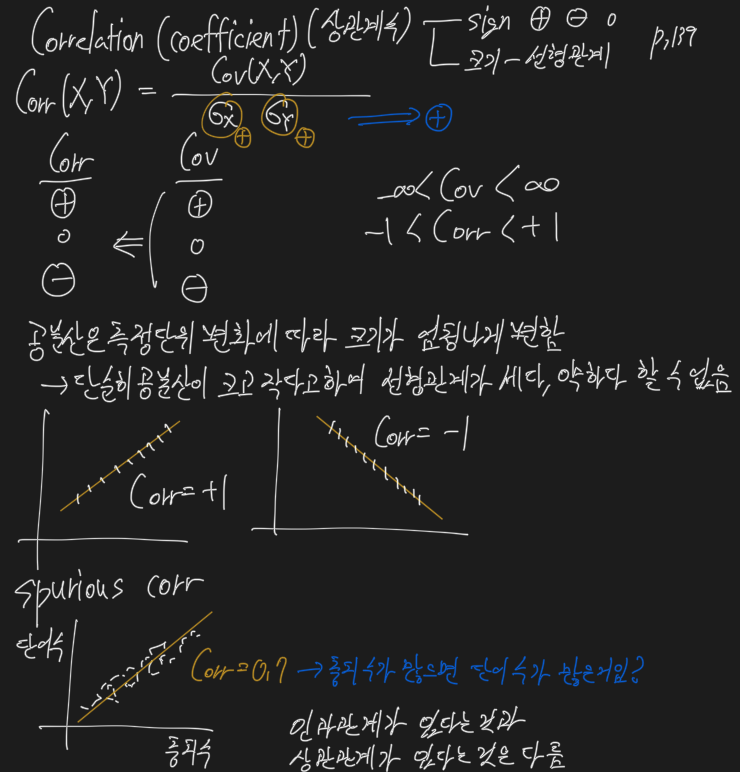 Correlation (coefficient) (상관계수) sign ⊕ ⊖ 0
크기 - 선형관계 p,139
Corr(X,Y) = Cov(X,Y)
σx σy ⇒ ⊕
⊕ ⊕
Corr Cov
⊕ ⊕
0 ⇐ 0
⊖ ⊖
-∞ < Cov < ∞
-1 < Corr < +1
공분산은 측정단위 변화에 따라 크기가 엄청나게 변함
→ 단순히 공분산이 크고 작다고하여 선형관계가 세다, 약하다 할 수 없음
Corr = +1
Corr = -1
spurious corr
단어수
Corr = 0,7 → 충치수가 많으면 단어수가 많은거임?
충치수
인과관계가 있다는 것과
상관관계가 있다는 것은 다름